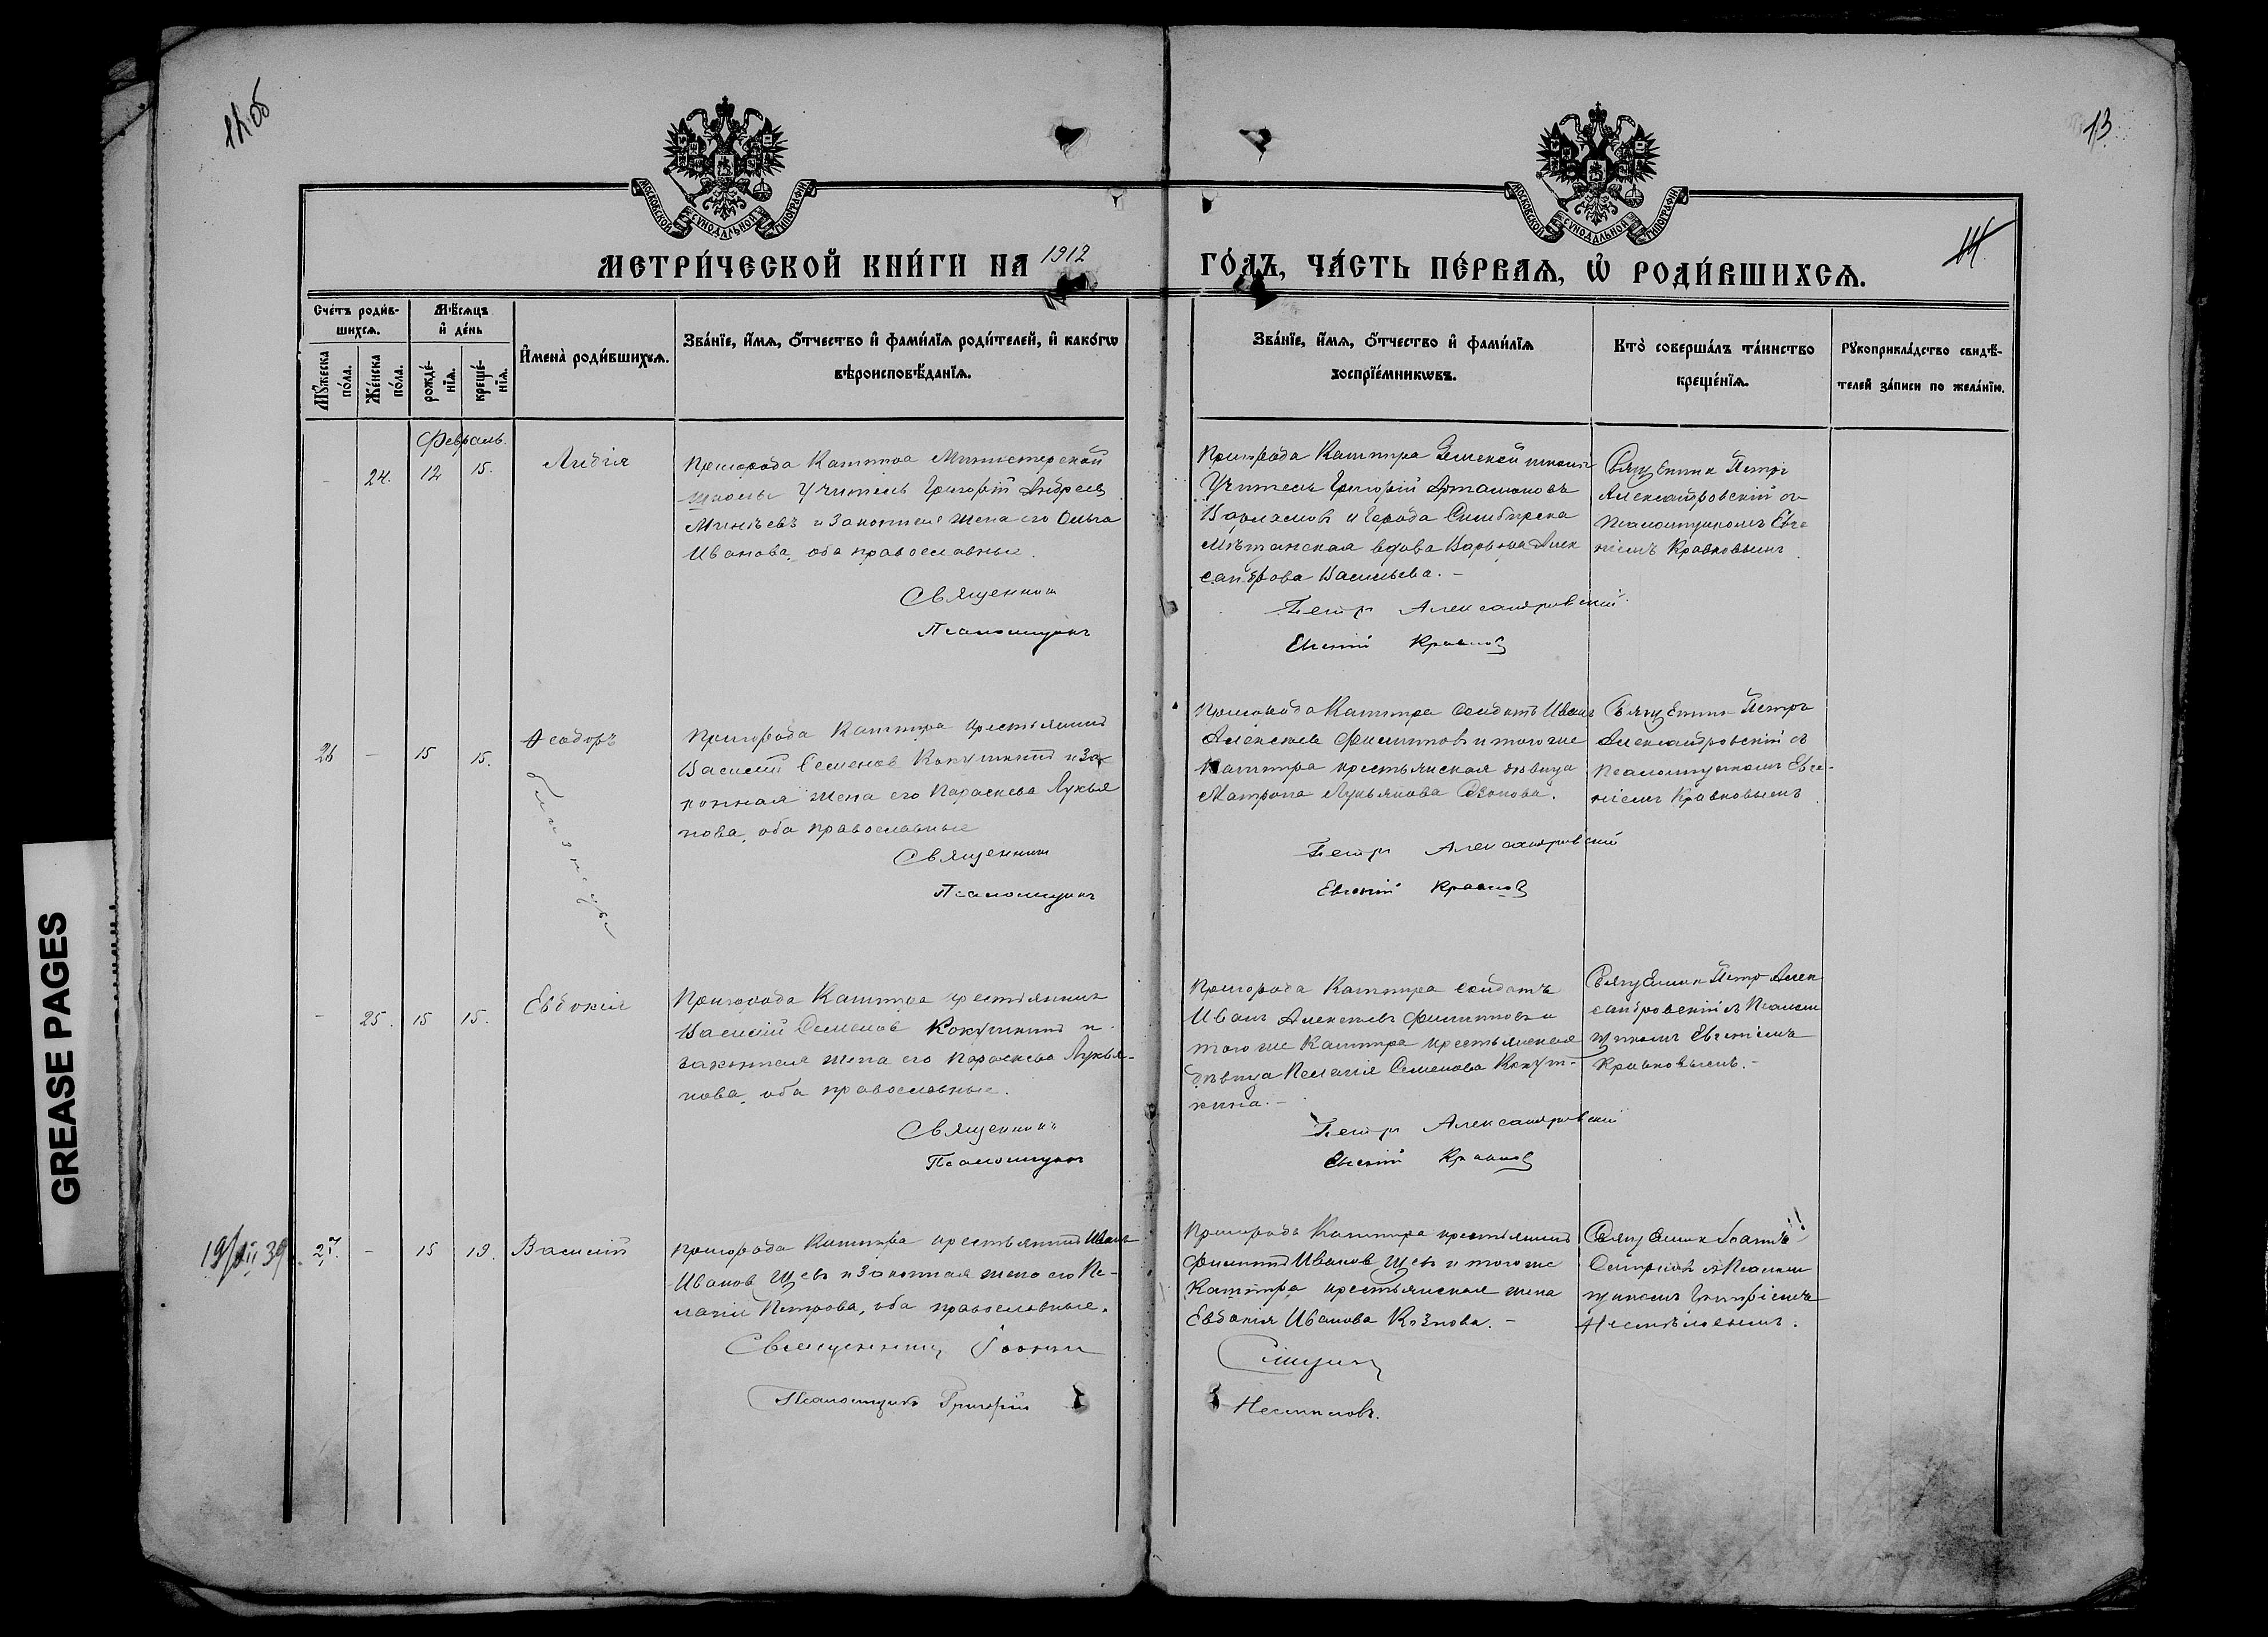 12 об
13
14
МОСКОВСКОЙ СѴНОДАЛЬНОЙ ТИПОГРАФІИ
МОСКОВСКОЙ СѴНОДАЛЬНОЙ ТИПОГРАФІИ
МЕТРИ́ЧЕСКОЙ КНИ́ГИ НА 1912 ГО́ДЪ, ЧА́СТЬ ПЕ́РВАѦ, Ѡ҆ РОДИ́ВШИХСѦ.
Сче́тъ роди́в-
шихсѧ.
Мѣ́сѧцъ
и҆ де́нь
Мꙋ́жеска
по́ла.
Же́нска
по́ла.
рожде́-
нїѧ.
креще́-
нїѧ.
И҆мена̀ роди́вшихсѧ.
Зва́нїе, и҆́мѧ, ѻ҆́тчество и҆ фами́лїѧ роди́телей, и҆ како́гѡ
вѣроисповѣ́данїѧ.
Зва́нїе, и҆́мѧ, ѻ҆́тчество и҆ фами́лїѧ
воспрїе́мникѡвъ.
Кто̀ соверша́лъ та́инство
креще́нїѧ.
Рꙋкоприкла́дство свидѣ́-
телей за́писи по жела́нїю.
Февраль.
- 24. 12 15. Лидія
Пригорода Кашпира Министерской
школы Учитель Григорій Андреев
и законная жена его Ольга
Иванова, оба православные.
Священник
Псаломщикъ
Пригорода Кашпира Земской школы
Учитель Григорій
и города Симбирска
мѣщанская вдова Варвара Алек
сандрова Васильева. -
Петръ Александровскій
Евгеній Кравков
Священник Петръ
Александровскій съ
Псаломщикомъ Евге
ніемъ Кравковымъ
26 - 15 15. Ѳеодоръ
близнецы
Пригорода Кашпира крестьянинъ
Василій Семенов Кокушкинъ и за
конная жена его Параскева Лукья
нова, оба православные
Священник
Псаломщикъ
Пригорода Кашпира солдатъ Иванъ
Алексѣевъ Филиппов и того же
Кашпира крестьянская дѣвица
Матрона Лукьянова
Петръ Александровскій
Евгеній Кравков
Священник Петръ
Александровскій съ
Псаломщикомъ Евге-
ніемъ Кравковымъ
- 25. 15 15. Евдокія
Пригорода Кашпира крестьянинъ
Василій Семенов Кокушкинъ и
законная жена его Параскева Лукья-
нова, оба православные.
Священникъ
Псаломщикъ
Пригорода Кашпира солдатъ
Иванъ Алексѣевъ Филипповъ и
того же Кашпира крестьянская
дѣвица Пелагія Семенова Кокуш-
кина. -
Петръ Александровскій
Евгеній Кравков
Священник Петръ Алек
сандровскій съ Псалом
щикомъ Евгеніемъ
Кравковымъ. -
27. - 15 19. Василій
Пригорода Кашпира крестьянинъ Иванъ
Иванов и законная жена его Пе-
лагія Петрова, оба православные.
Священникъ Іоаннъ
Псаломщикъ Григорій
Пригорода Кашпира крестьянинъ
Филиппъ Иванов и того же
Кашпира крестьянская жена
Евдокія Иванова
Нестѣловъ.
Священник Іоаннъ
съ Псалом
щикомъ Григоріемъ
Нестѣловымъ.
GREASE PAGES